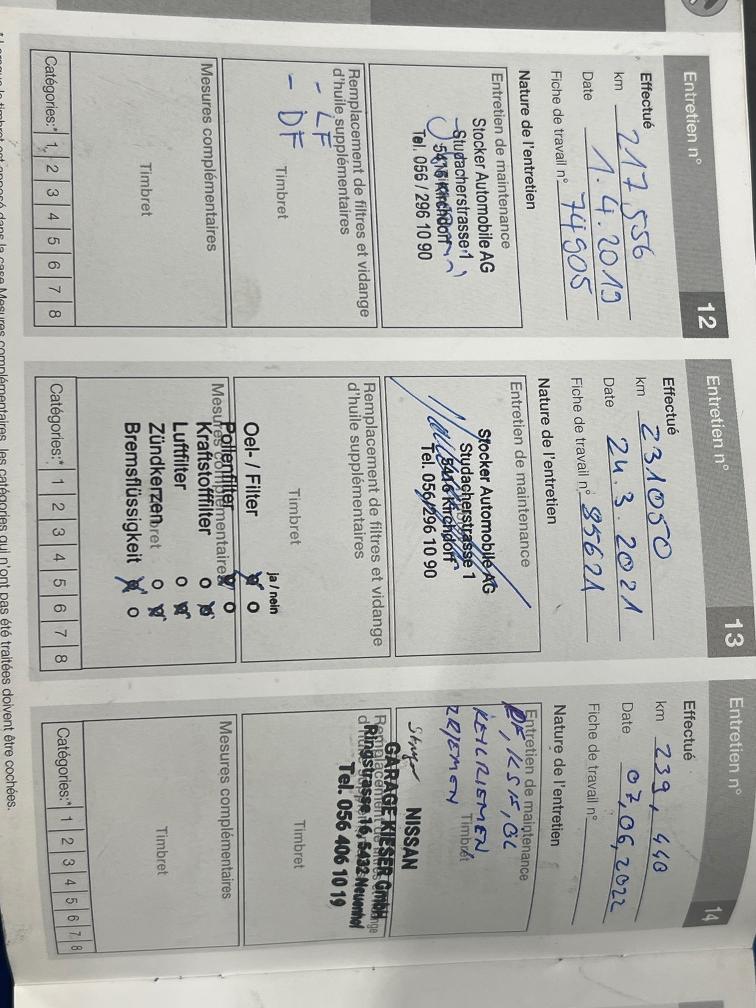 Entretien n° 12
Effectué
km 217,556
Date 1.4.2019
Fiche de travail n° 74905
Nature de l'entretien
Entretien de maintenance
Stocker Automobile AG
Studacherstrasse 1
5416 Kirchdorf
Tel. 056 / 296 10 90
Remplacement de filtres et vidange
d'huile supplémentaires
- LF
- DF
Timbret
Mesures complémentaires
Timbret
Catégories:* 1 2 3 4 5 6 7 8
Entretien n° 13
Effectué
km 231050
Date 24.3.2021
Fiche de travail n° 85621
Nature de l'entretien
Entretien de maintenance
Stocker Automobile AG
Studacherstrasse 1
5416 Kirchdorf
Tel. 056/296 10 90
Remplacement de filtres et vidange
d'huile supplémentaires
Timbret
ja / nein
Oel- / Filter
Pollenfilter
Mesures complémentaires
Kraftstofffilter
Luftfilter
Zündkerzen
Bremsflüssigkeit
Catégories:* 1 2 3 4 5 6 7 8
Entretien n° 14
Effectué
km 239,440
Date 07,06,2022
Fiche de travail n°
Nature de l'entretien
Entretien de maintenance
KEILRIEMEN
Timbret
NISSAN
GARAGE KIESER GmbH
Ringstrasse 16, 5432 Neuenhof
Tel. 056 406 10 19
Timbret
Mesures complémentaires
Timbret
Catégories:* 1 2 3 4 5 6 7 8
les catégories qui n'ont pas été traitées doivent être cochées.